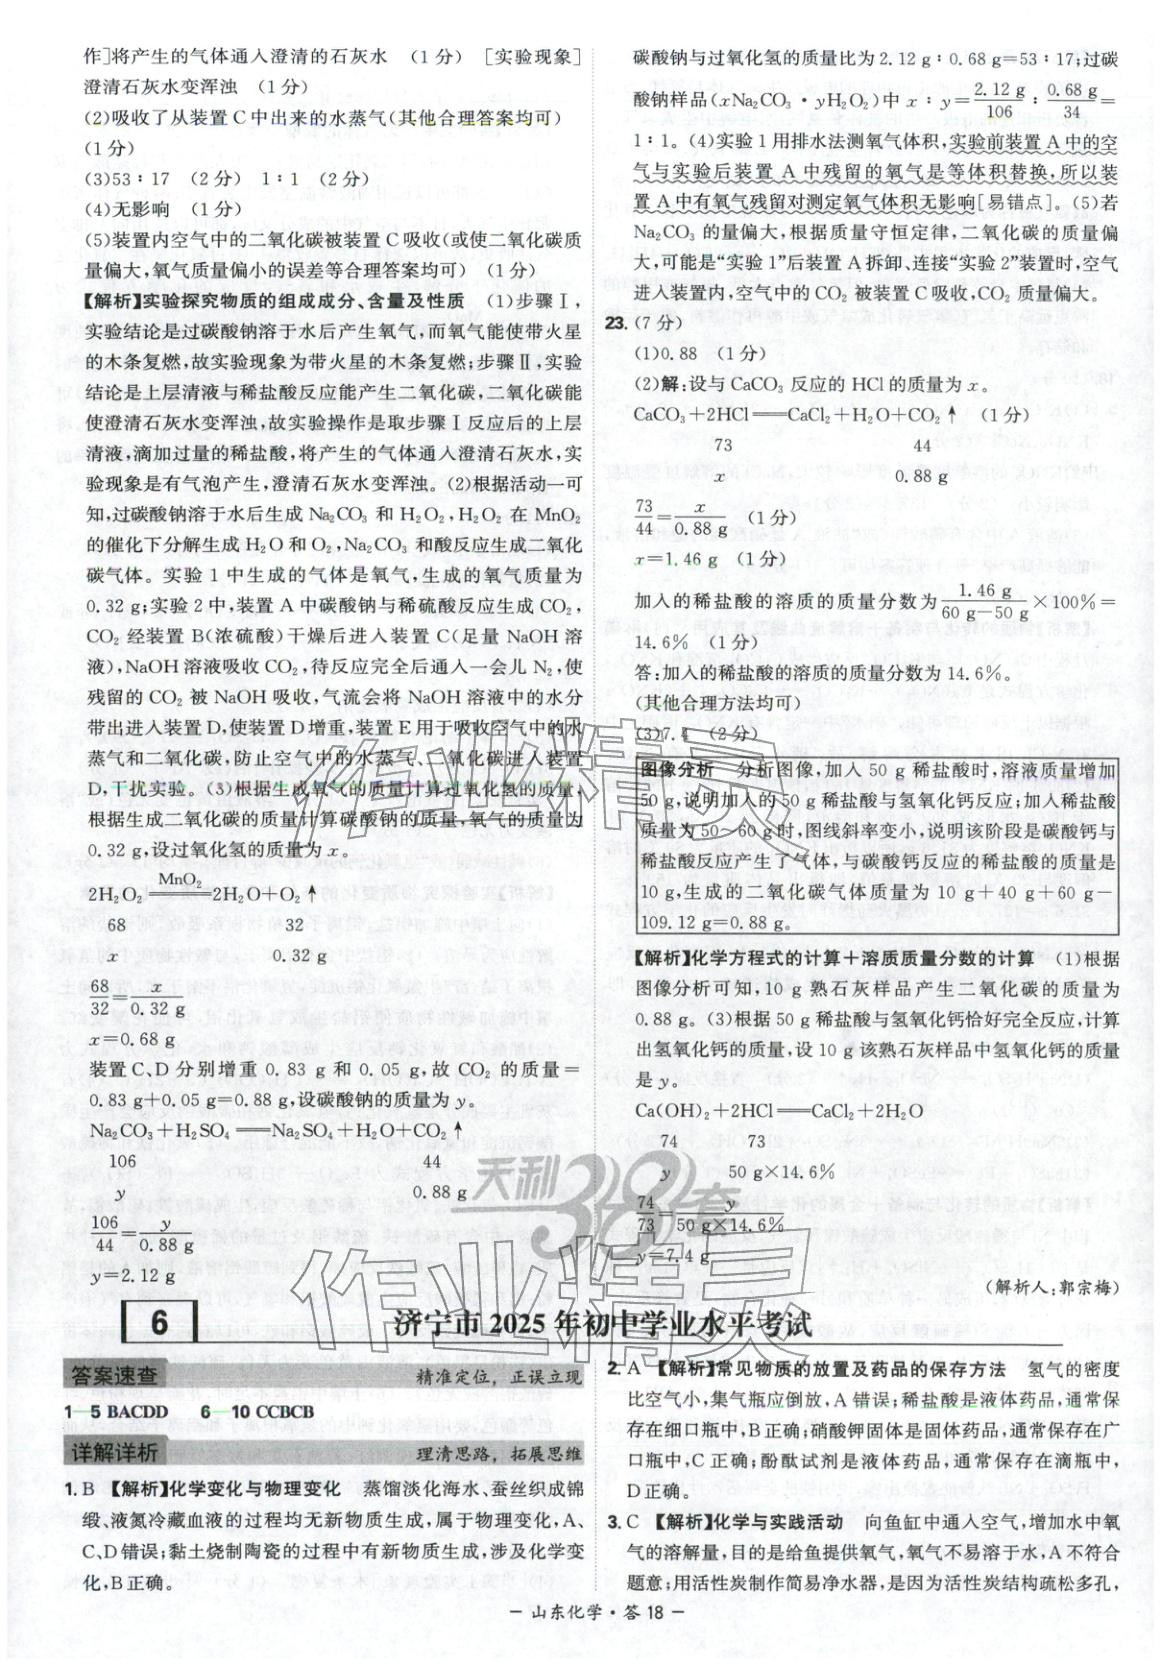 作]将产生的气体通入澄清的石灰水 (1分) [实验现象]
澄清石灰水变浑浊 (1分)
(2)吸收了从装置C中出来的水蒸气(其他合理答案均可)
(1分)
(3)53∶17 (2分) 1∶1 (2分)
(4)无影响 (1分)
(5)装置内空气中的二氧化碳被装置C吸收(或使二氧化碳质
量偏大,氧气质量偏小的误差等合理答案均可) (1分)
【解析】实验探究物质的组成成分、含量及性质 (1)步骤Ⅰ,
实验结论是过碳酸钠溶于水后产生氧气,而氧气能使带火星
的木条复燃,故实验现象为带火星的木条复燃;步骤Ⅱ,实验
结论是上层清液与稀盐酸反应能产生二氧化碳,二氧化碳能
使澄清石灰水变浑浊,故实验操作是取步骤Ⅰ反应后的上层
清液,滴加过量的稀盐酸,将产生的气体通入澄清石灰水,实
验现象是有气泡产生,澄清石灰水变浑浊。(2)根据活动一可
知,过碳酸钠溶于水后生成Na₂CO₃ 和 H₂O₂,H₂O₂ 在 MnO₂
的催化下分解生成H₂O和O₂,Na₂CO₃ 和酸反应生成二氧化
碳气体。实验1中生成的气体是氧气,生成的氧气质量为
0.32 g;实验2中,装置A中碳酸钠与稀硫酸反应生成CO₂,
CO₂ 经装置B(浓硫酸)干燥后进入装置C(足量NaOH溶
液),NaOH溶液吸收CO₂,待反应完全后通入一会儿N₂,使
残留的CO₂ 被NaOH吸收,气流会将NaOH溶液中的水分
带出进入装置D,使装置D增重,装置E用于吸收空气中的水
蒸气和二氧化碳,防止空气中的水蒸气、二氧化碳进入装置
D,干扰实验。(3)根据生成氧气的质量计算过氧化氢的质量,
根据生成二氧化碳的质量计算碳酸钠的质量,氧气的质量为
0.32 g,设过氧化氢的质量为x。
2H₂O₂ =MnO₂= 2H₂O+O₂↑
68 32
x 0.32 g
68/32 = x/0.32 g
x=0.68 g
装置C、D分别增重0.83 g和0.05 g,故CO₂ 的质量=
0.83 g+0.05 g=0.88 g,设碳酸钠的质量为y。
Na₂CO₃+H₂SO₄══Na₂SO₄+H₂O+CO₂↑
106 44
y 0.88 g
106/44 = y/0.88 g
y=2.12 g
碳酸钠与过氧化氢的质量比为2.12 g∶0.68 g=53∶17;过碳
酸钠样品(xNa₂CO₃·yH₂O₂)中x∶y=2.12 g/106∶0.68 g/34=
1∶1。(4)实验1用排水法测氧气体积,实验前装置A中的空
气与实验后装置A中残留的氧气是等体积替换,所以装
置A中有氧气残留对测定氧气体积无影响[易错点]。(5)若
Na₂CO₃ 的量偏大,根据质量守恒定律,二氧化碳的质量偏
大,可能是“实验1”后装置A拆卸、连接“实验2”装置时,空气
进入装置内,空气中的CO₂ 被装置C吸收,CO₂ 质量偏大。
23.(7分)
(1)0.88 (1分)
(2)解:设与CaCO₃ 反应的HCl的质量为x。
CaCO₃+2HCl══CaCl₂+H₂O+CO₂↑ (1分)
73 44
x 0.88 g
73/44 = x/0.88 g (1分)
x=1.46 g (1分)
加入的稀盐酸的溶质的质量分数为1.46 g/(60 g−50 g)×100%=
14.6% (1分)
答:加入的稀盐酸的溶质的质量分数为14.6%。
(其他合理方法均可)
(3)7.4 (2分)
图像分析 分析图像,加入50 g稀盐酸时,溶液质量增加
50 g,说明加入的50 g稀盐酸与氢氧化钙反应;加入稀盐酸
质量为50~60 g时,图线斜率变小,说明该阶段是碳酸钙与
稀盐酸反应产生了气体,与碳酸钙反应的稀盐酸的质量是
10 g,生成的二氧化碳气体质量为10 g+40 g+60 g−
109.12 g=0.88 g。
【解析】化学方程式的计算+溶质质量分数的计算 (1)根据
图像分析可知,10 g熟石灰样品产生二氧化碳的质量为
0.88 g。(3)根据50 g稀盐酸与氢氧化钙恰好完全反应,计算
出氢氧化钙的质量,设10 g该熟石灰样品中氢氧化钙的质量
是y。
Ca(OH)₂+2HCl══CaCl₂+2H₂O
74 73
y 50 g×14.6%
74/73 = y/(50 g×14.6%)
y=7.4 g
(解析人:郭宗梅)
作业精灵
天利38套
作业精灵
6 济宁市2025年初中学业水平考试
答案速查 精准定位,正误立现
1—5 BACDD 6—10 CCBCB
详解详析 理清思路,拓展思维
1. B 【解析】化学变化与物理变化 蒸馏淡化海水、蚕丝织成锦
缎、液氮冷藏血液的过程均无新物质生成,属于物理变化,A、
C、D错误;黏土烧制陶瓷的过程中有新物质生成,涉及化学变
化,B正确。
2. A 【解析】常见物质的放置及药品的保存方法 氢气的密度
比空气小,集气瓶应倒放,A错误;稀盐酸是液体药品,通常保
存在细口瓶中,B正确;硝酸钾固体是固体药品,通常保存在广
口瓶中,C正确;酚酞试剂是液体药品,通常保存在滴瓶中,
D正确。
3. C 【解析】化学与实践活动 向鱼缸中通入空气,增加水中氧
气的溶解量,目的是给鱼提供氧气,氧气不易溶于水,A不符合
题意;用活性炭制作简易净水器,是因为活性炭结构疏松多孔,
– 山东化学·答18 –